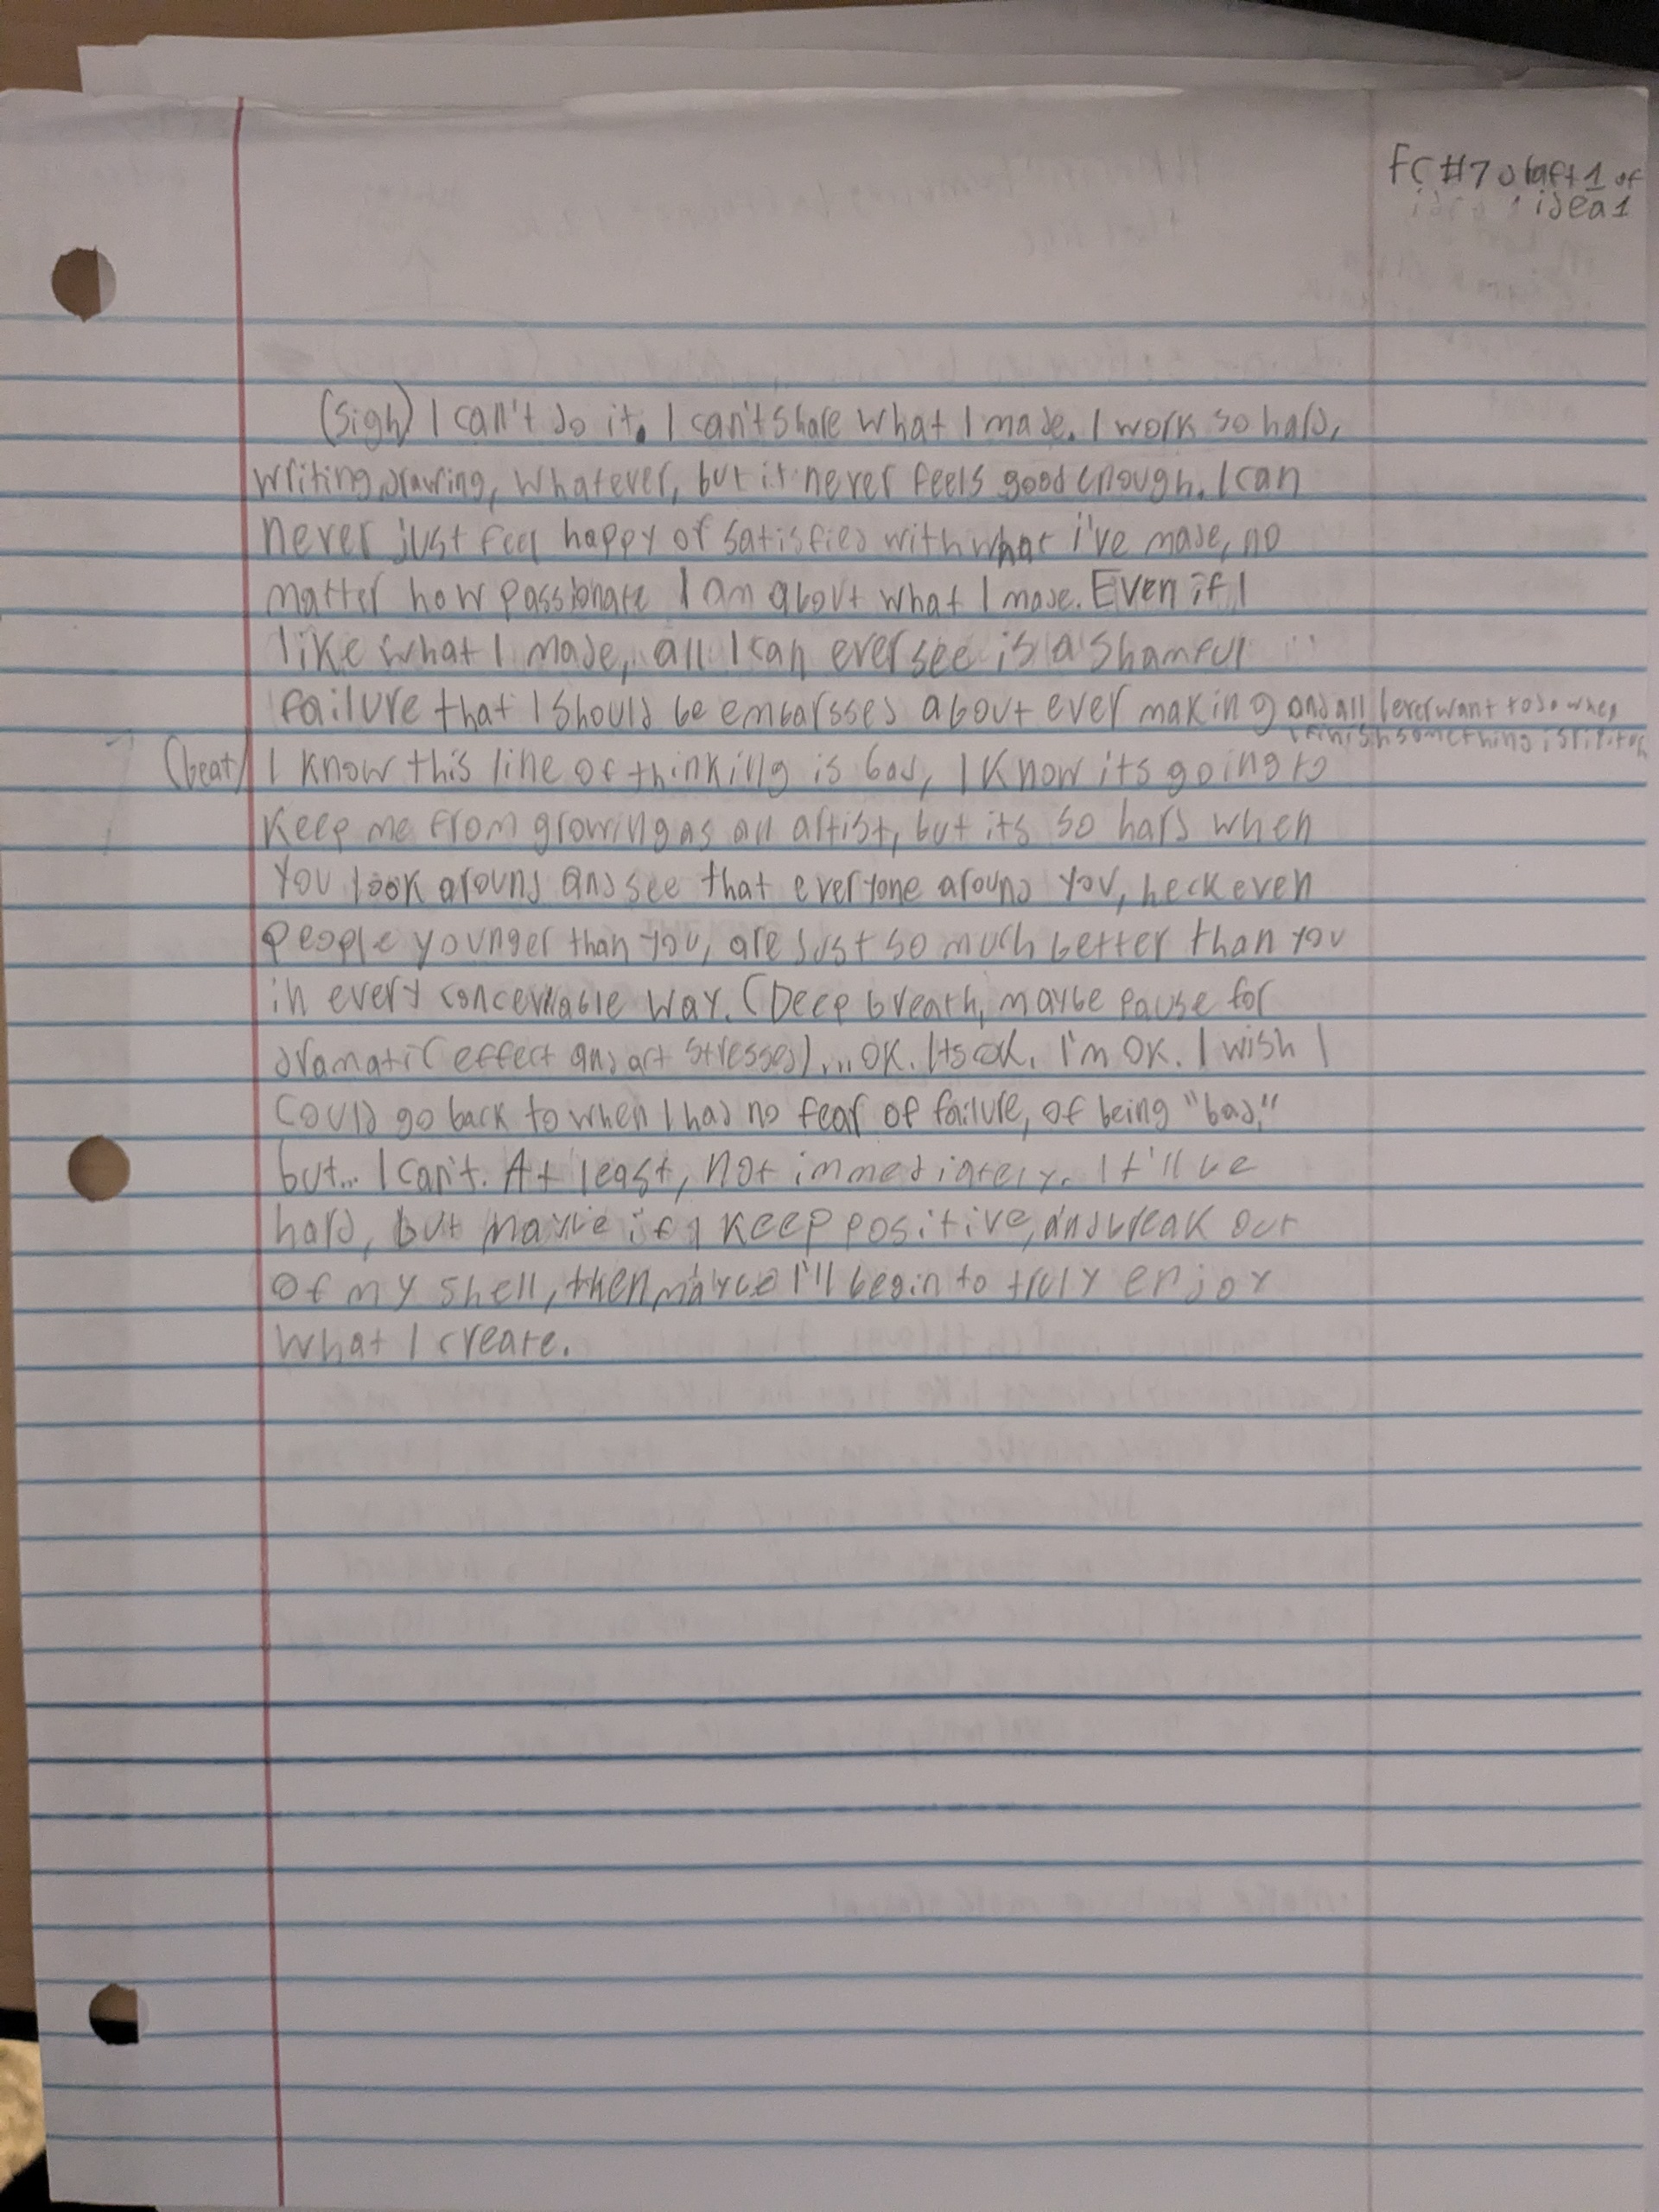 FC #7 draft 1 of
idea 1
(sigh) I can't do it. I can't share what I made. I work so hard,
writing, drawing, whatever, but it never feels good enough. I can
never just feel happy or satisfied with what i've made, no
matter how passionate I am about what I made. Even if I
like what I made, all I can ever see is a shamful
failure that I should be embarssed about ever making and all I ever want to do when
I finish something is rip it
(beat) I know this line of thinking is bad, I know its going to
keep me from growing as an artist, but its so hard when
you look around and see that everyone around you, heck even
people younger than you, are just so much better than you
in every concevable way. (Deep breath, maybe pause for
dramatic effect and act stressed)... OK. Its ok. I'm OK. I wish I
could go back to when I had no fear of failure, of being "bad,"
but... I can't. At least, not immediately. It'll be
hard, but maybe if I keep positive, and break out
of my shell, then maybe I'll begin to truly enjoy
what I create.